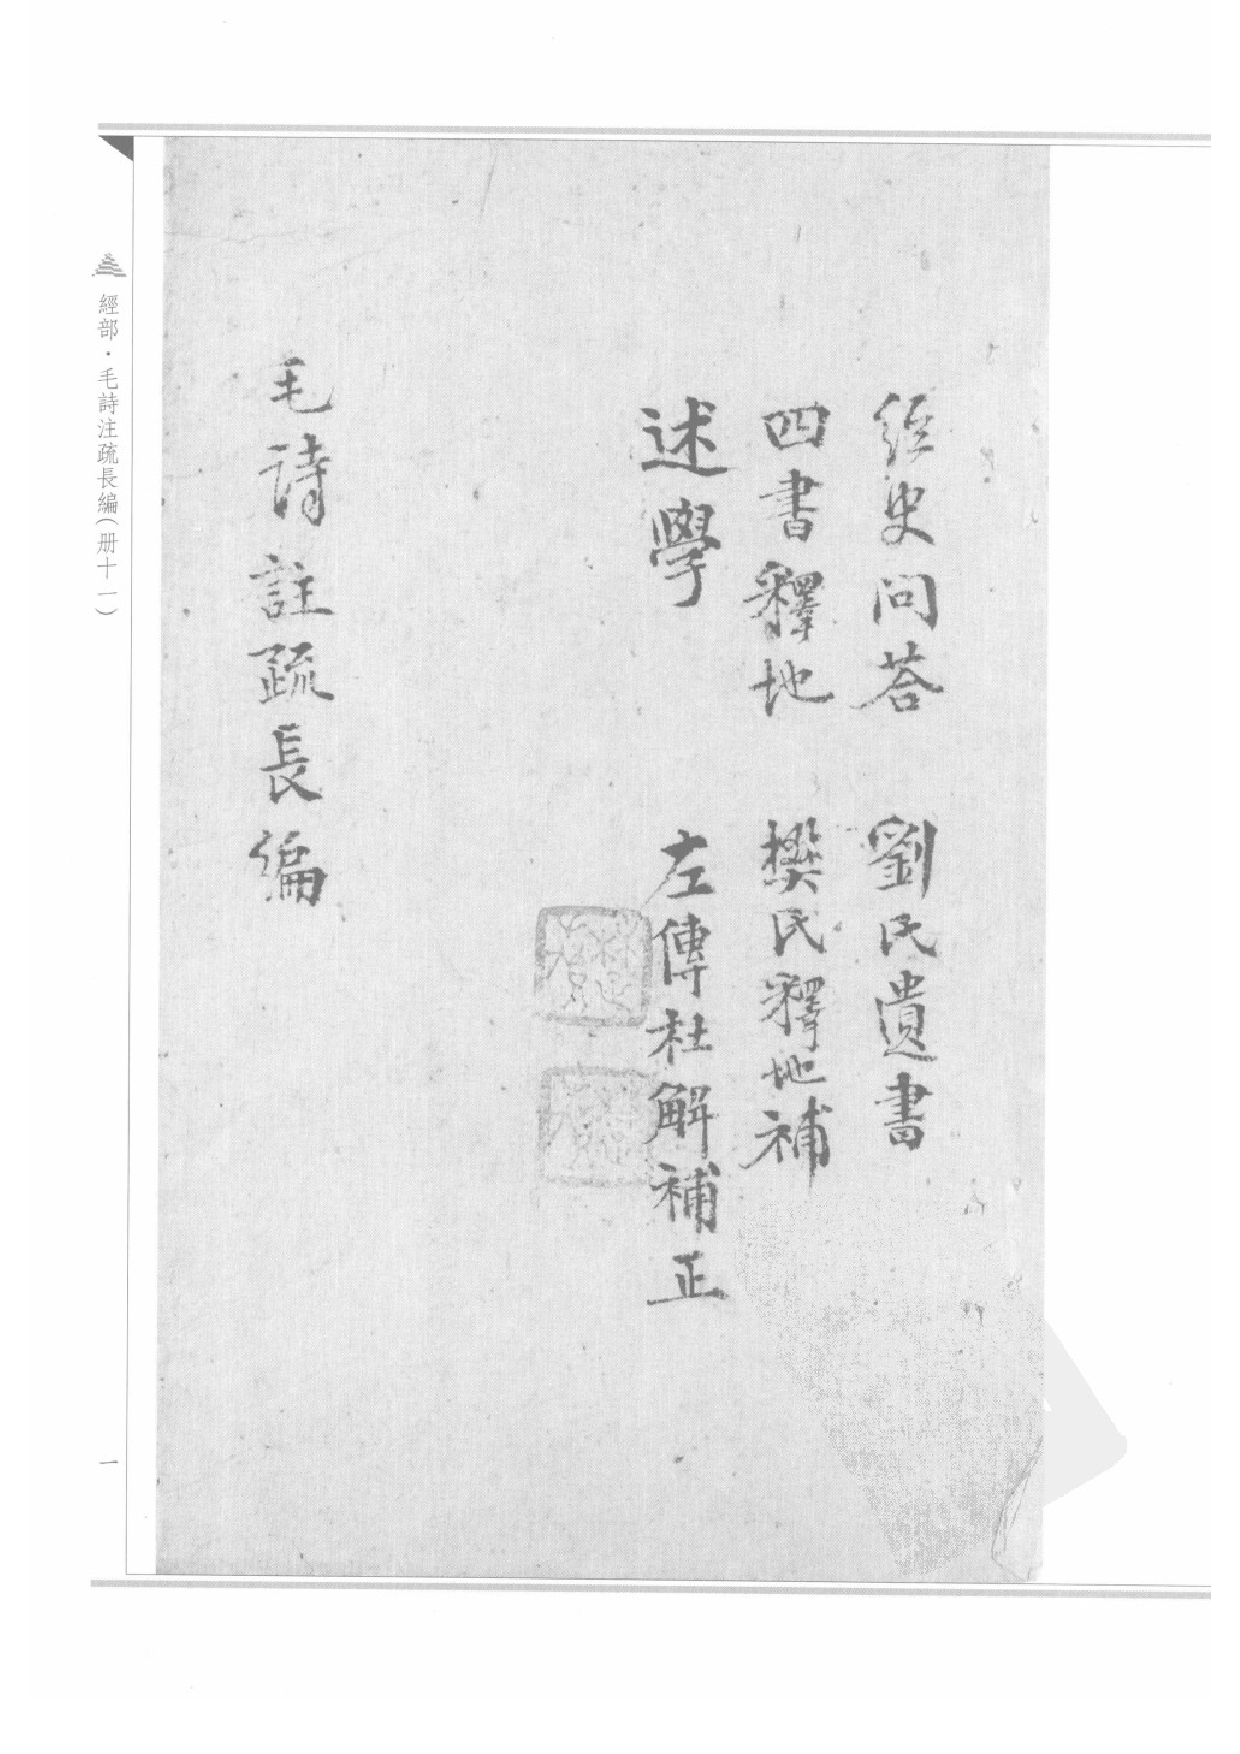 经史问荅　劉氏遺書
四書釋地　樊氏釋地補
述學　左傳杜解補正
毛诗註疏長编
經部·毛詩注疏長編（册十一）
一